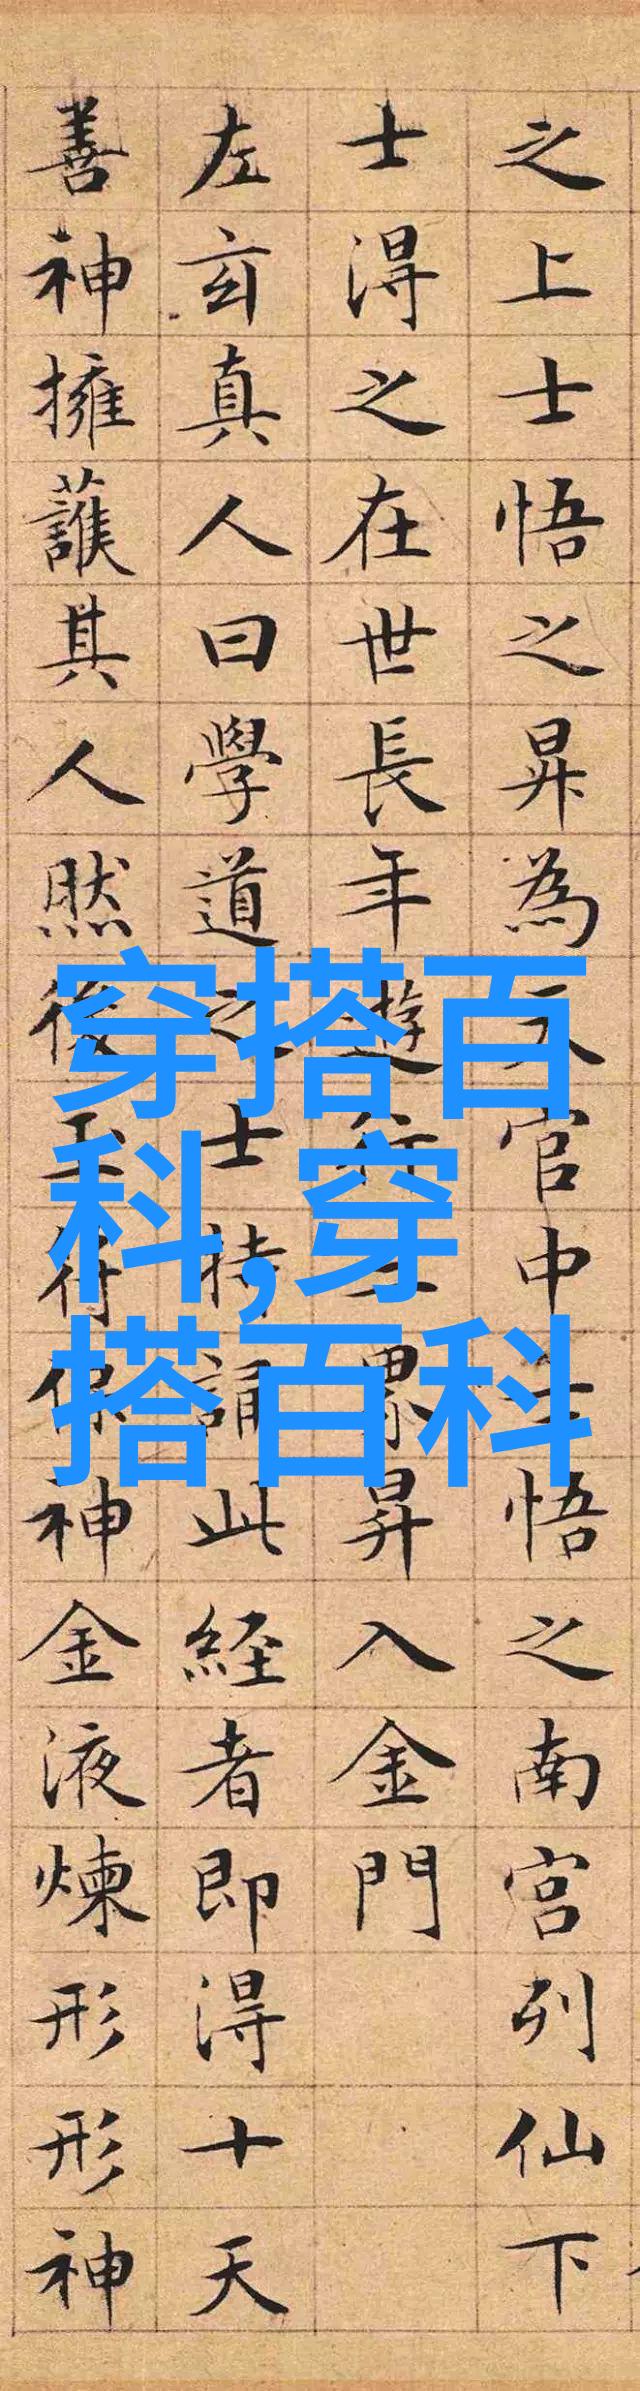 之上士悟之昇為天官中士悟之南宮列仙下
士淂之在世長年遊行三界昇入金門
左玄真人曰學道之士持誦此經者即淂十天
善神擁護其人然後玉符保神金液煉形形神
穿搭百
科,穿
搭百科